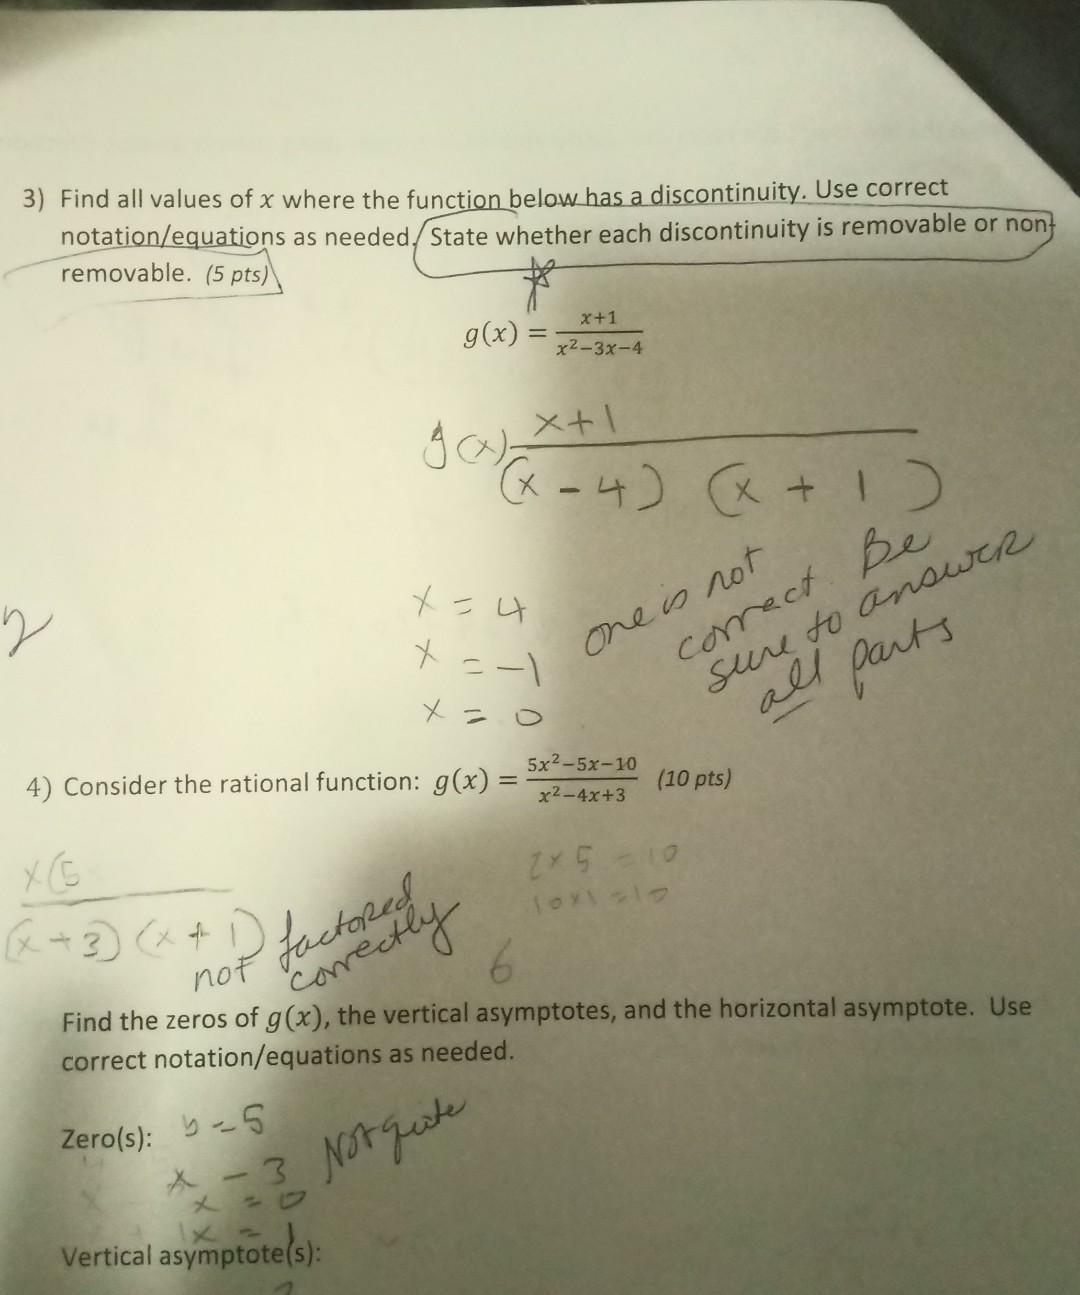 3) Find all values of x where the function below has a discontinuity. Use correct
notation/equations as needed. State whether each discontinuity is removable or non-
removable. (5 pts)
g(x) = x+1 / x²−3x−4
g(x) = x+1 / (x − 4) (x + 1)
x = 4
x = −1
x = 0
one is not
correct. Be
sure to answer
all parts
2
4) Consider the rational function: g(x) = 5x²−5x−10 / x²−4x+3 (10 pts)
x(5
(x+3) (x+1)
not factored
correctly
2x5 = 10
10x1 = 10
6
Find the zeros of g(x), the vertical asymptotes, and the horizontal asymptote. Use
correct notation/equations as needed.
Zero(s): = 5
x − 3
x = 0
x = 1
Not quite
Vertical asymptote(s):